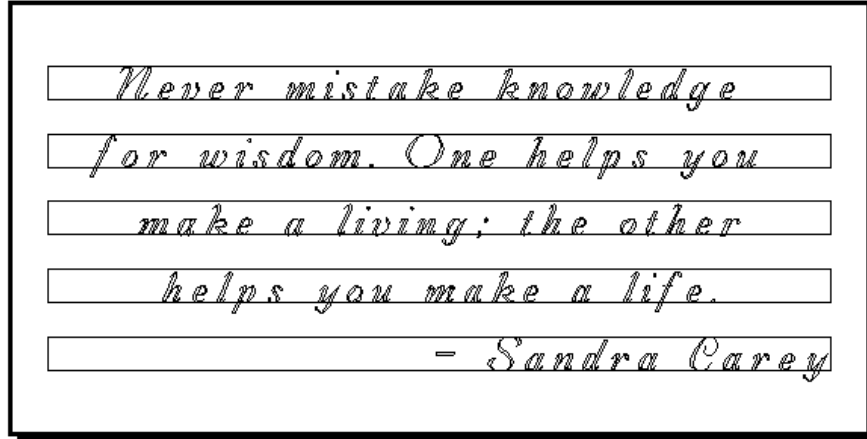 Never mistake knowledge
for wisdom. One helps you
make a living; the other
helps you make a life.
– Sandra Carey